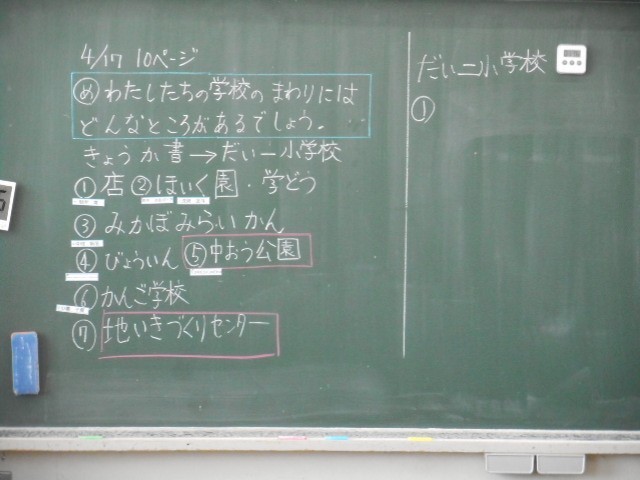 4/17 10ページ
め わたしたちの学校の まわりには
どんなところがあるでしょう。
きょうか書→だい一小学校
① 店 ② ほいく園・学どう
③ みかぼみらいかん
④ びょういん ⑤ 中おう公園
⑥ かんご学校
⑦ 地いきづくりセンター
だい二小学校
①